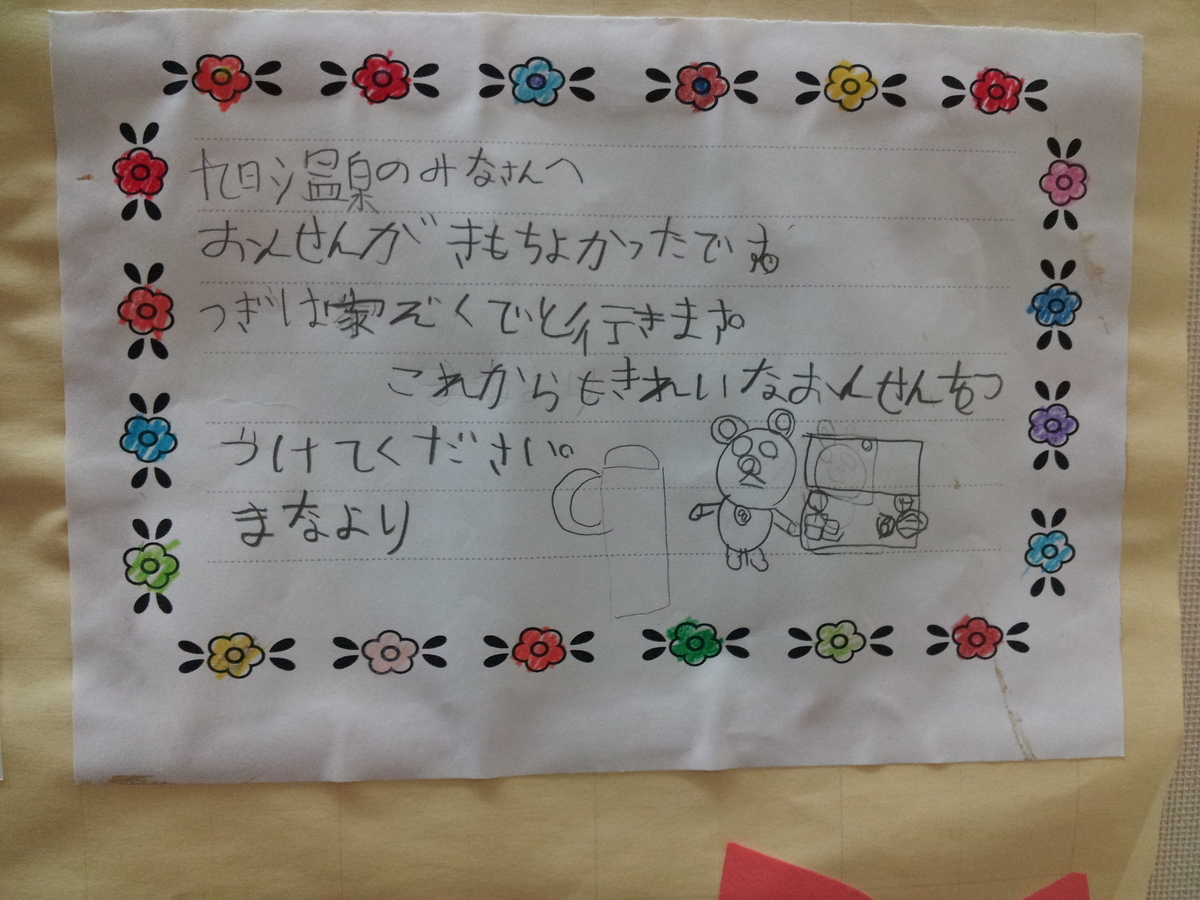 温泉のみなさんへ
おんせんがきもちよかったです。
つぎは家ぞくでと行きます。
これからもきれいなおんせんをつ
づけてください。
まなより